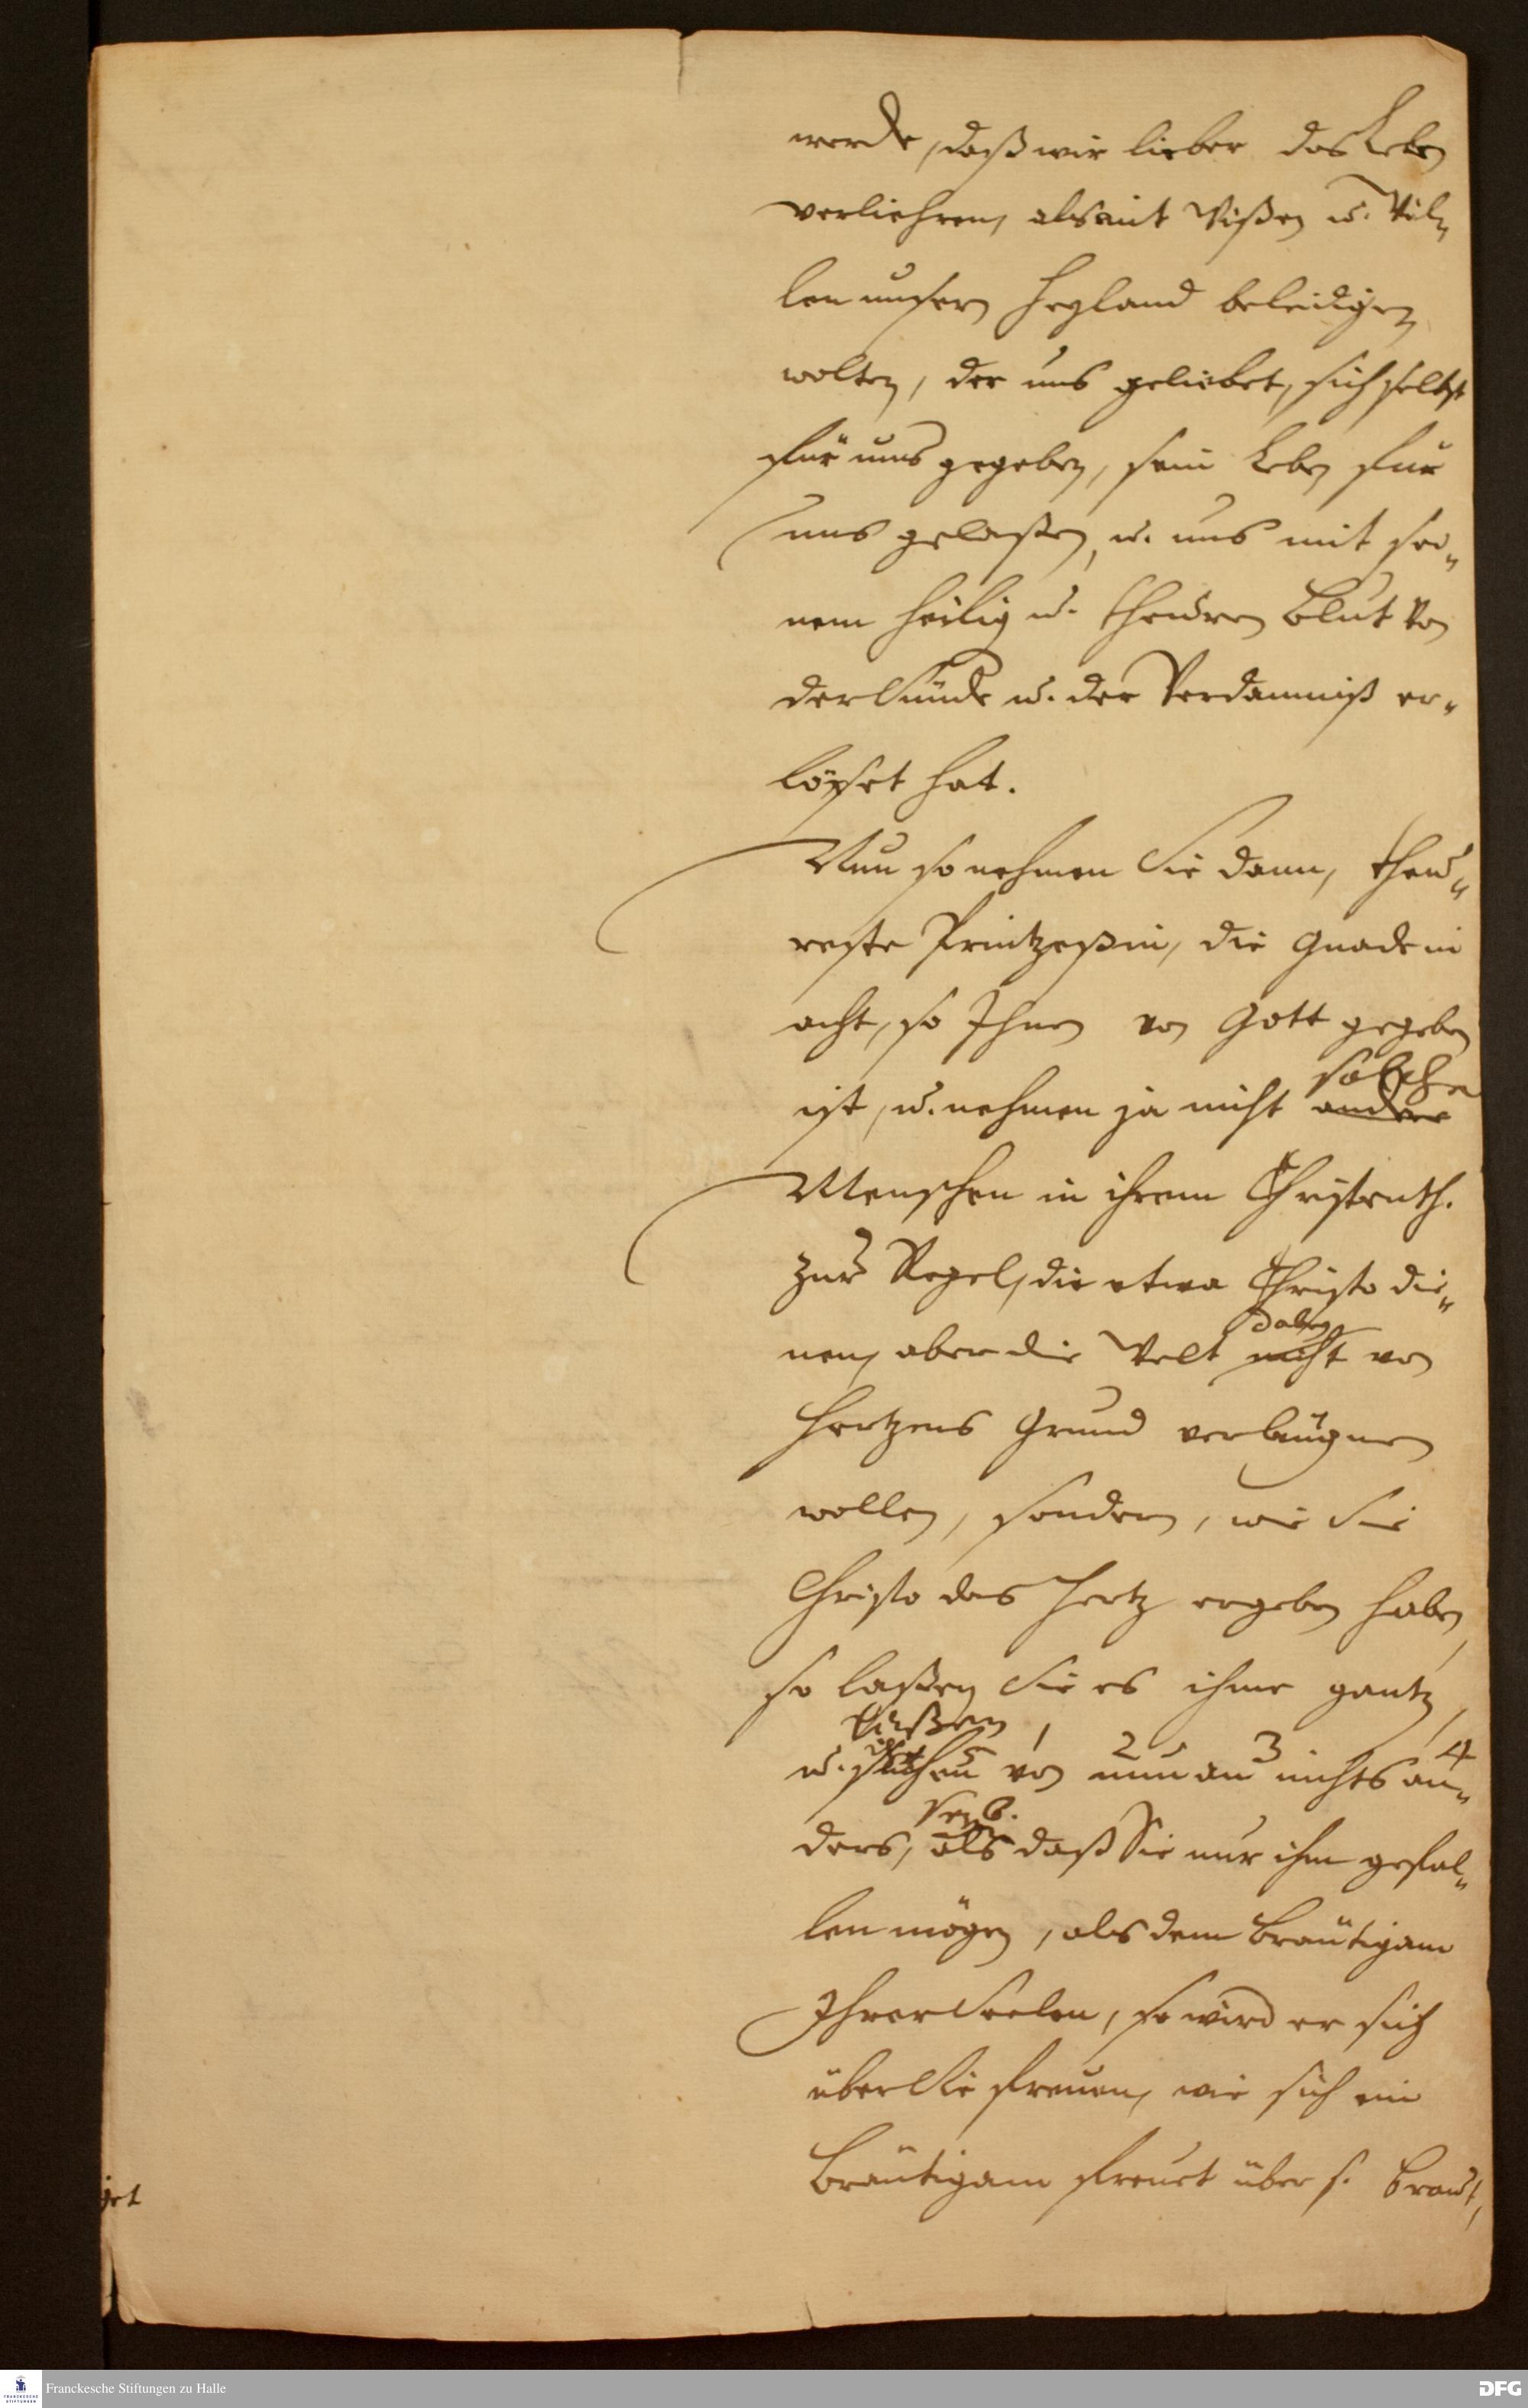 werde, daß wir lieber das Leben
verliehren, als mit Wißen u. Wil-
len unsern Heyland beleidigen
wolten, der uns geliebet, sich selbst
für uns gegeben, sein Leben für
uns gelaßen, u. uns mit sei-
nem heilig u. theuren Blut von
der Sünde u. der Verdammniß er-
löset hat.
Nun so nehmen Sie dann, theu-
reste Printzeßin, die Gnade in
acht, so Ihnen von Gott gegeben
solche
ist, u. nehmen ja nicht andere
Menschen in ihrem Christenth.
zur Regel, die etwa Christo die-
dabey
nen, aber die Welt nicht von
Hertzens Grund verleugnen
wollen, sondern, wie Sie
Christo das Hertz ergeben haben,
so laßen Sie es ihme gantz,
laßen 1 2 3 4
u. suchen von nun an nichts an-
seyn 6.
ders, als daß Sie nur ihm gefal-
len mögen, als dem Bräutigam
Ihrer Seelen, so wird er sich
über Sie freuen, wie sich ein
Bräutigam freuet über s. Braut,
get
Franckesche Stiftungen zu Halle
DFG